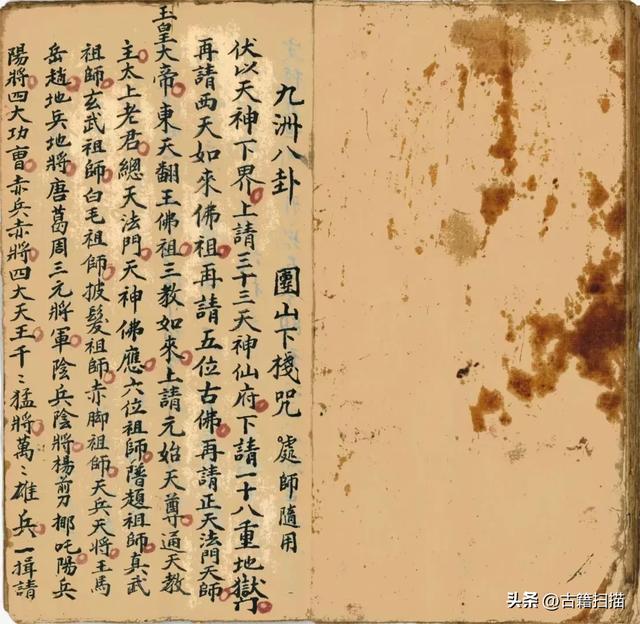 九洲八卦 圍山下棧咒 處師隨用
伏以天神下界上請三十三天神仙府下請一十八重地獄門
再請西天如來佛祖再請五位古佛再請正天法門天師
玉皇大帝東天翻王佛祖三教如來上請元始天尊通天教
主太上老君總天法門天神佛應六位祖師隱趙祖師真武
祖師玄武祖師白毛祖師披髮祖師赤脚祖師天兵天將王馬
岳趙地兵地將唐葛周三元將軍陰兵陰將楊剪挪吒陽兵
陽將四大功曹赤兵赤將四大天王千〻猛將萬〻雄兵一揖請
头条 @古籍扫描